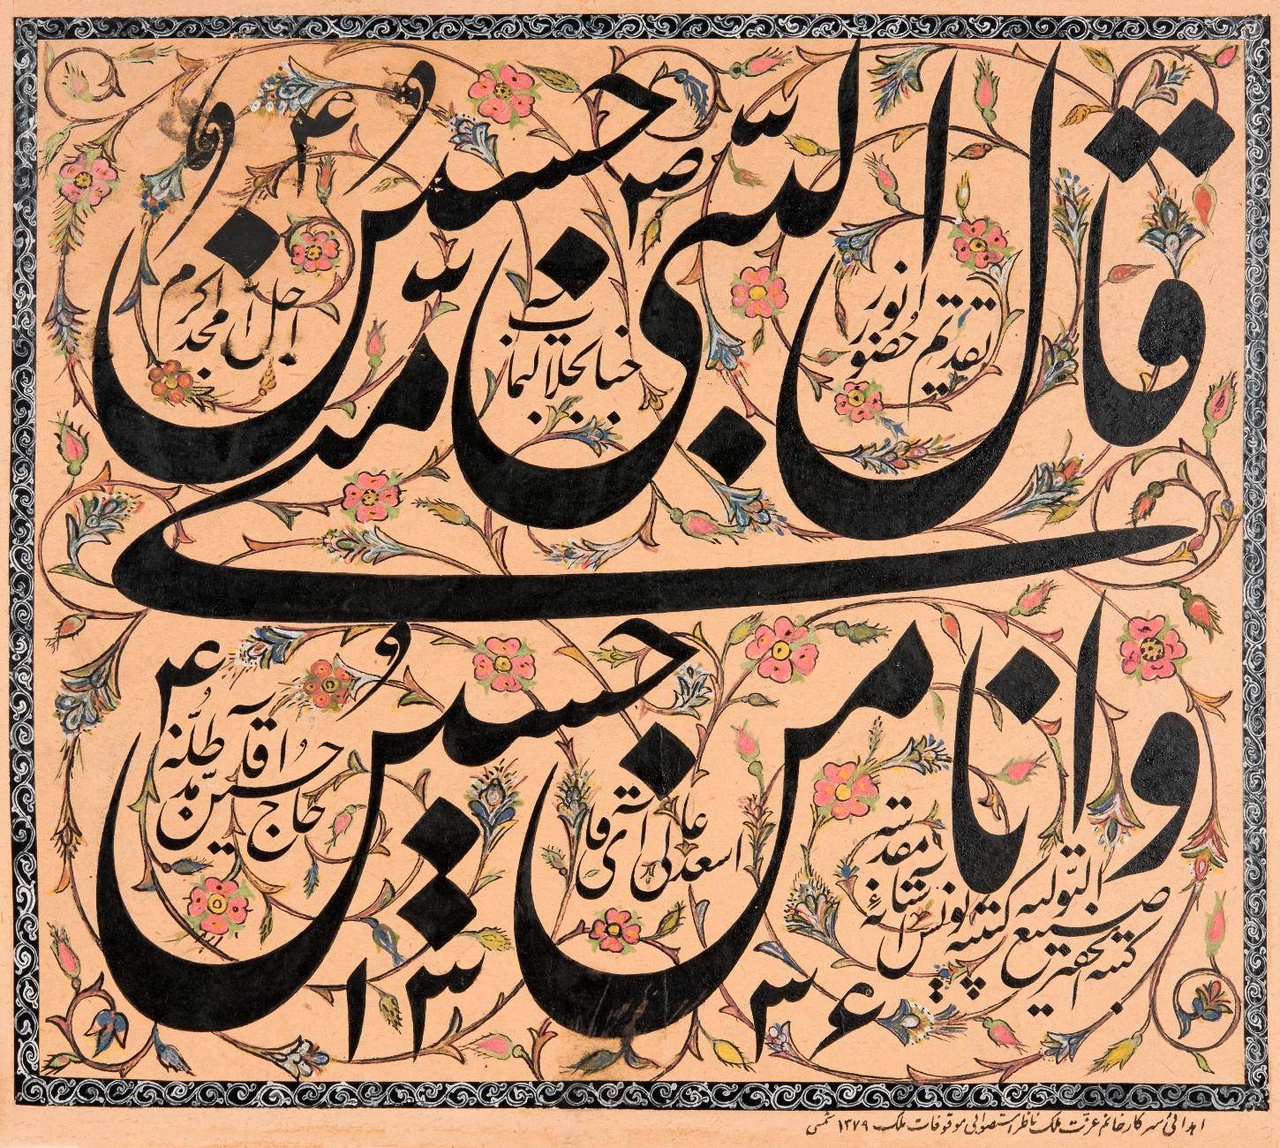 قال النبی ص حسین منی
تقدیم حضور انور
جنابجلالتمآب
اجل امجد اکرم
و انا من حسین ع
حاج حسین آقا مد ظله
کتبه الحقیر صنیع التولیه
کتیبه نویس آستانه مقدسه
۱۳۳۶
اهدائی سرکار خانم عزت ملک ناظر استصوابی موقوفات ملک ۱۳۷۹ شمسی